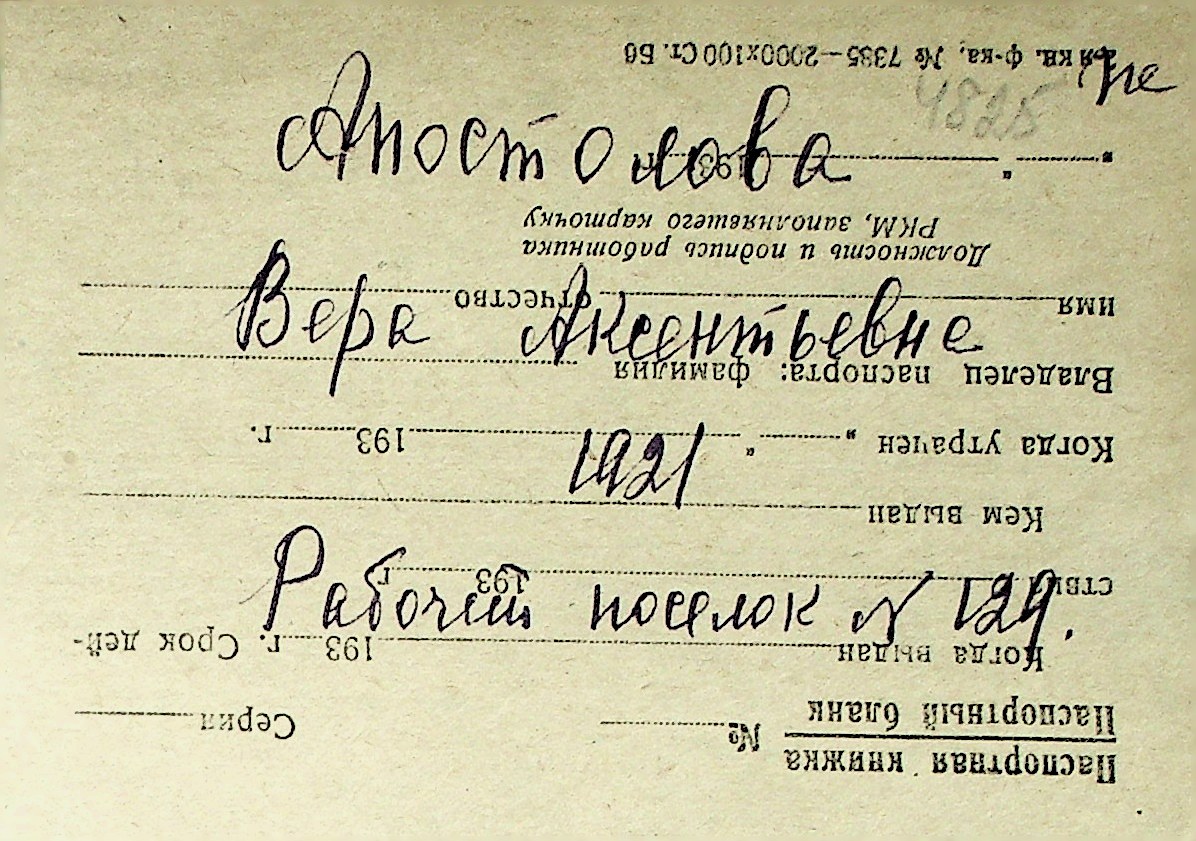 4825 не
Апостолова
Вера Аксентьевне
1921
Рабочий поселок № 129.
Паспортная книжка
Паспортный бланк
№ Серия
Когда выдан 193 г. Срок дей-
ствия 193 г.
Кем выдан
Когда утрачен „ “ 193 г.
Владелец паспорта: фамилия
имя отчество
Должность и подпись работника
РКМ, заполнявшего карточку
„ “ 193 г.
кв. ф-ка, № 7385—2000х100 Ст. Бб